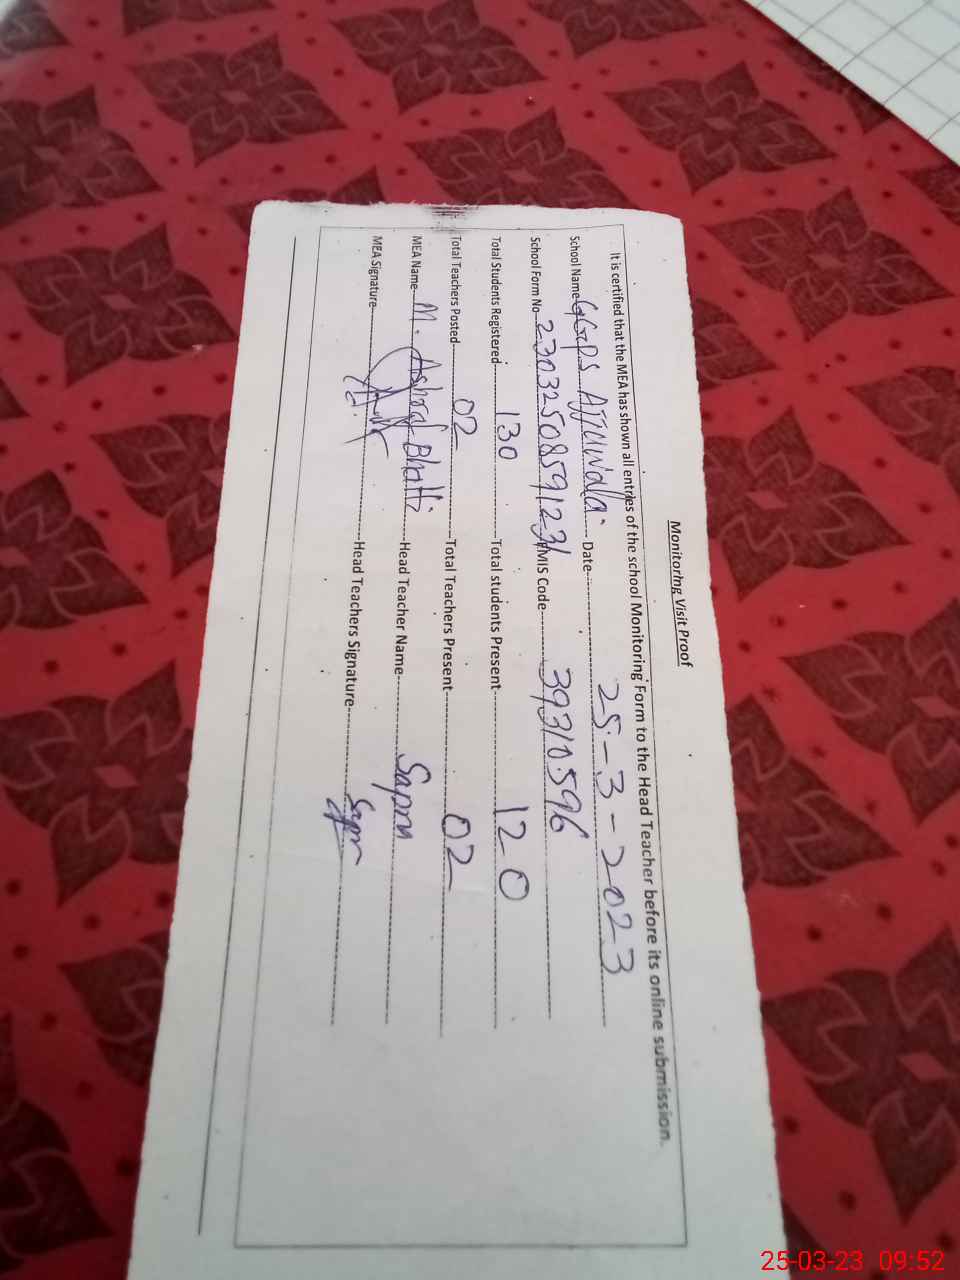 Monitoring Visit Proof
It is certified that the MEA has shown all entries of the school Monitoring Form to the Head Teacher before its online submission.
School Name GGPS Ajjuwala. Date 25-3-2023
School Form No 2303250859123 EMIS Code 39310596
Total Students Registered 130 Total students Present 120
Total Teachers Posted 02 Total Teachers Present 02
MEA Name M. Ashraf Bhatti Head Teacher Name Sapra
MEA Signature Head Teachers Signature
25-03-23 09:52